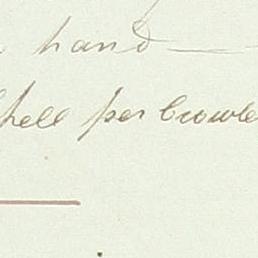 hand
hell per Crowle